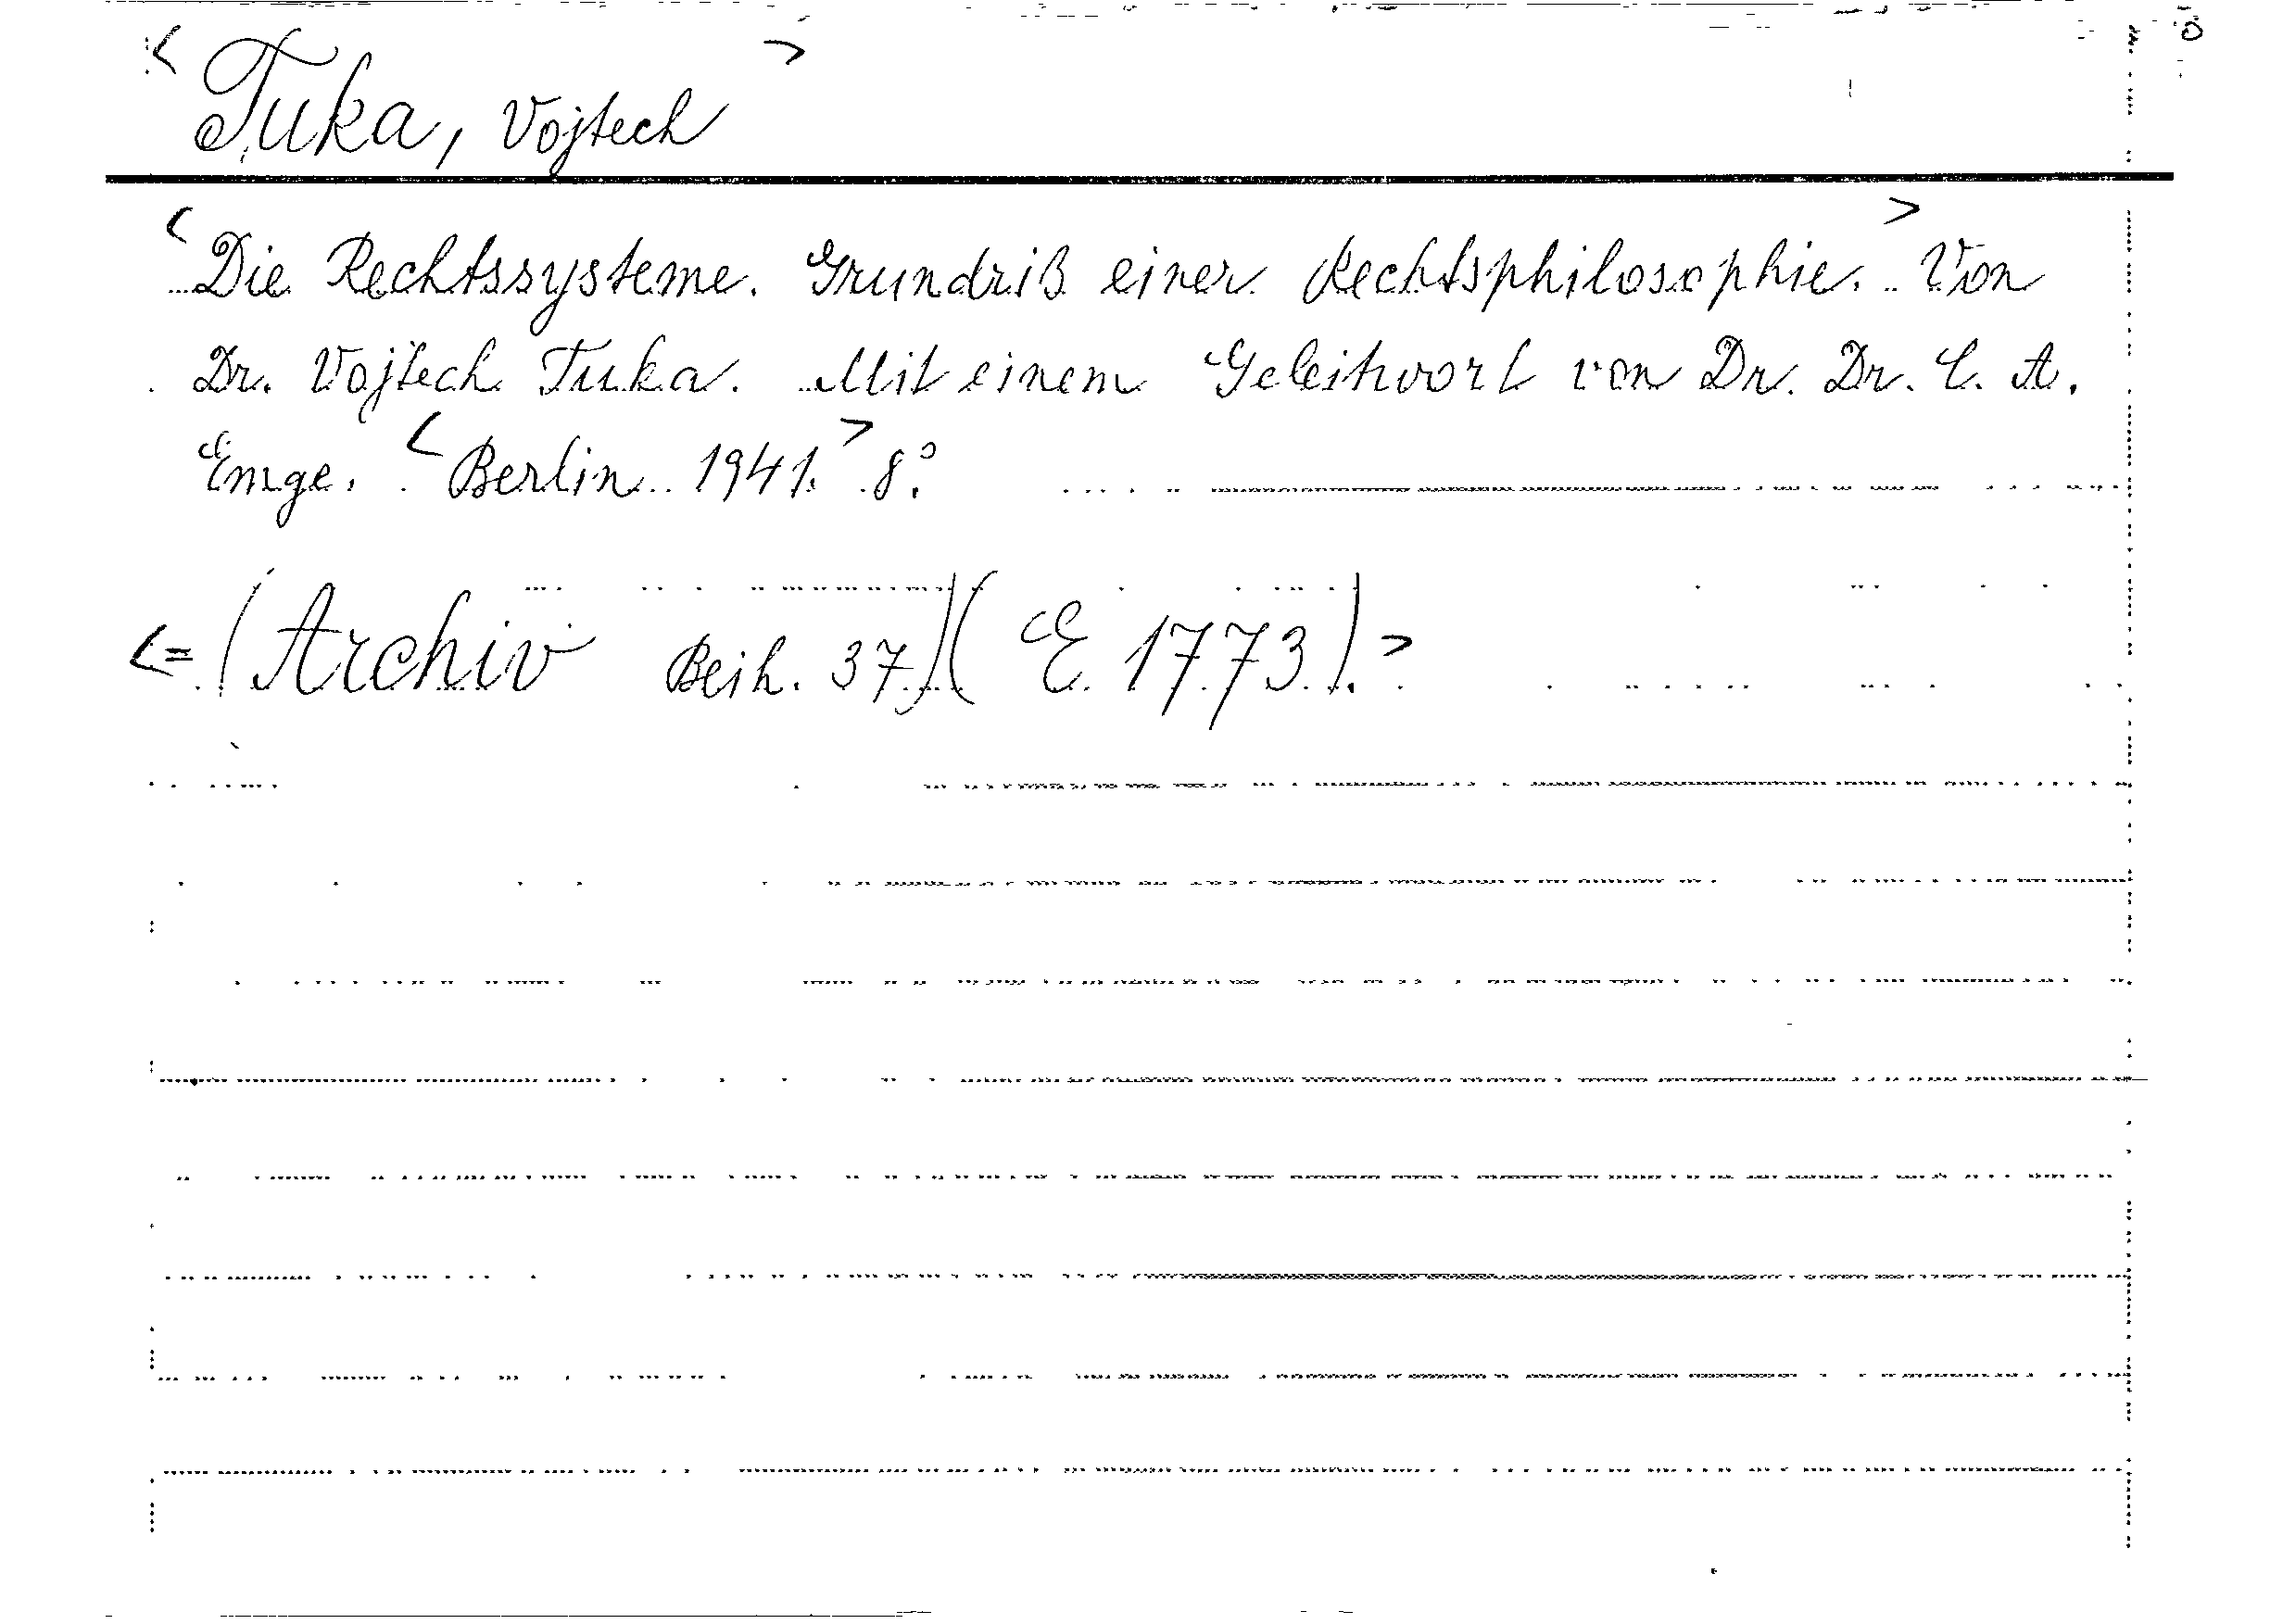 <Tuka, Vojtech>
<Die Rechtssysteme. Grundriß einer Rechtsphilosophie.> Von
Dr. Vojtech Tuka. Mit einem Geleitwort von Dr. Dr. C. A.
Emge. <Berlin 1941.> 8°.
<= (Archiv Beih. 37.)( E. 1773.).>